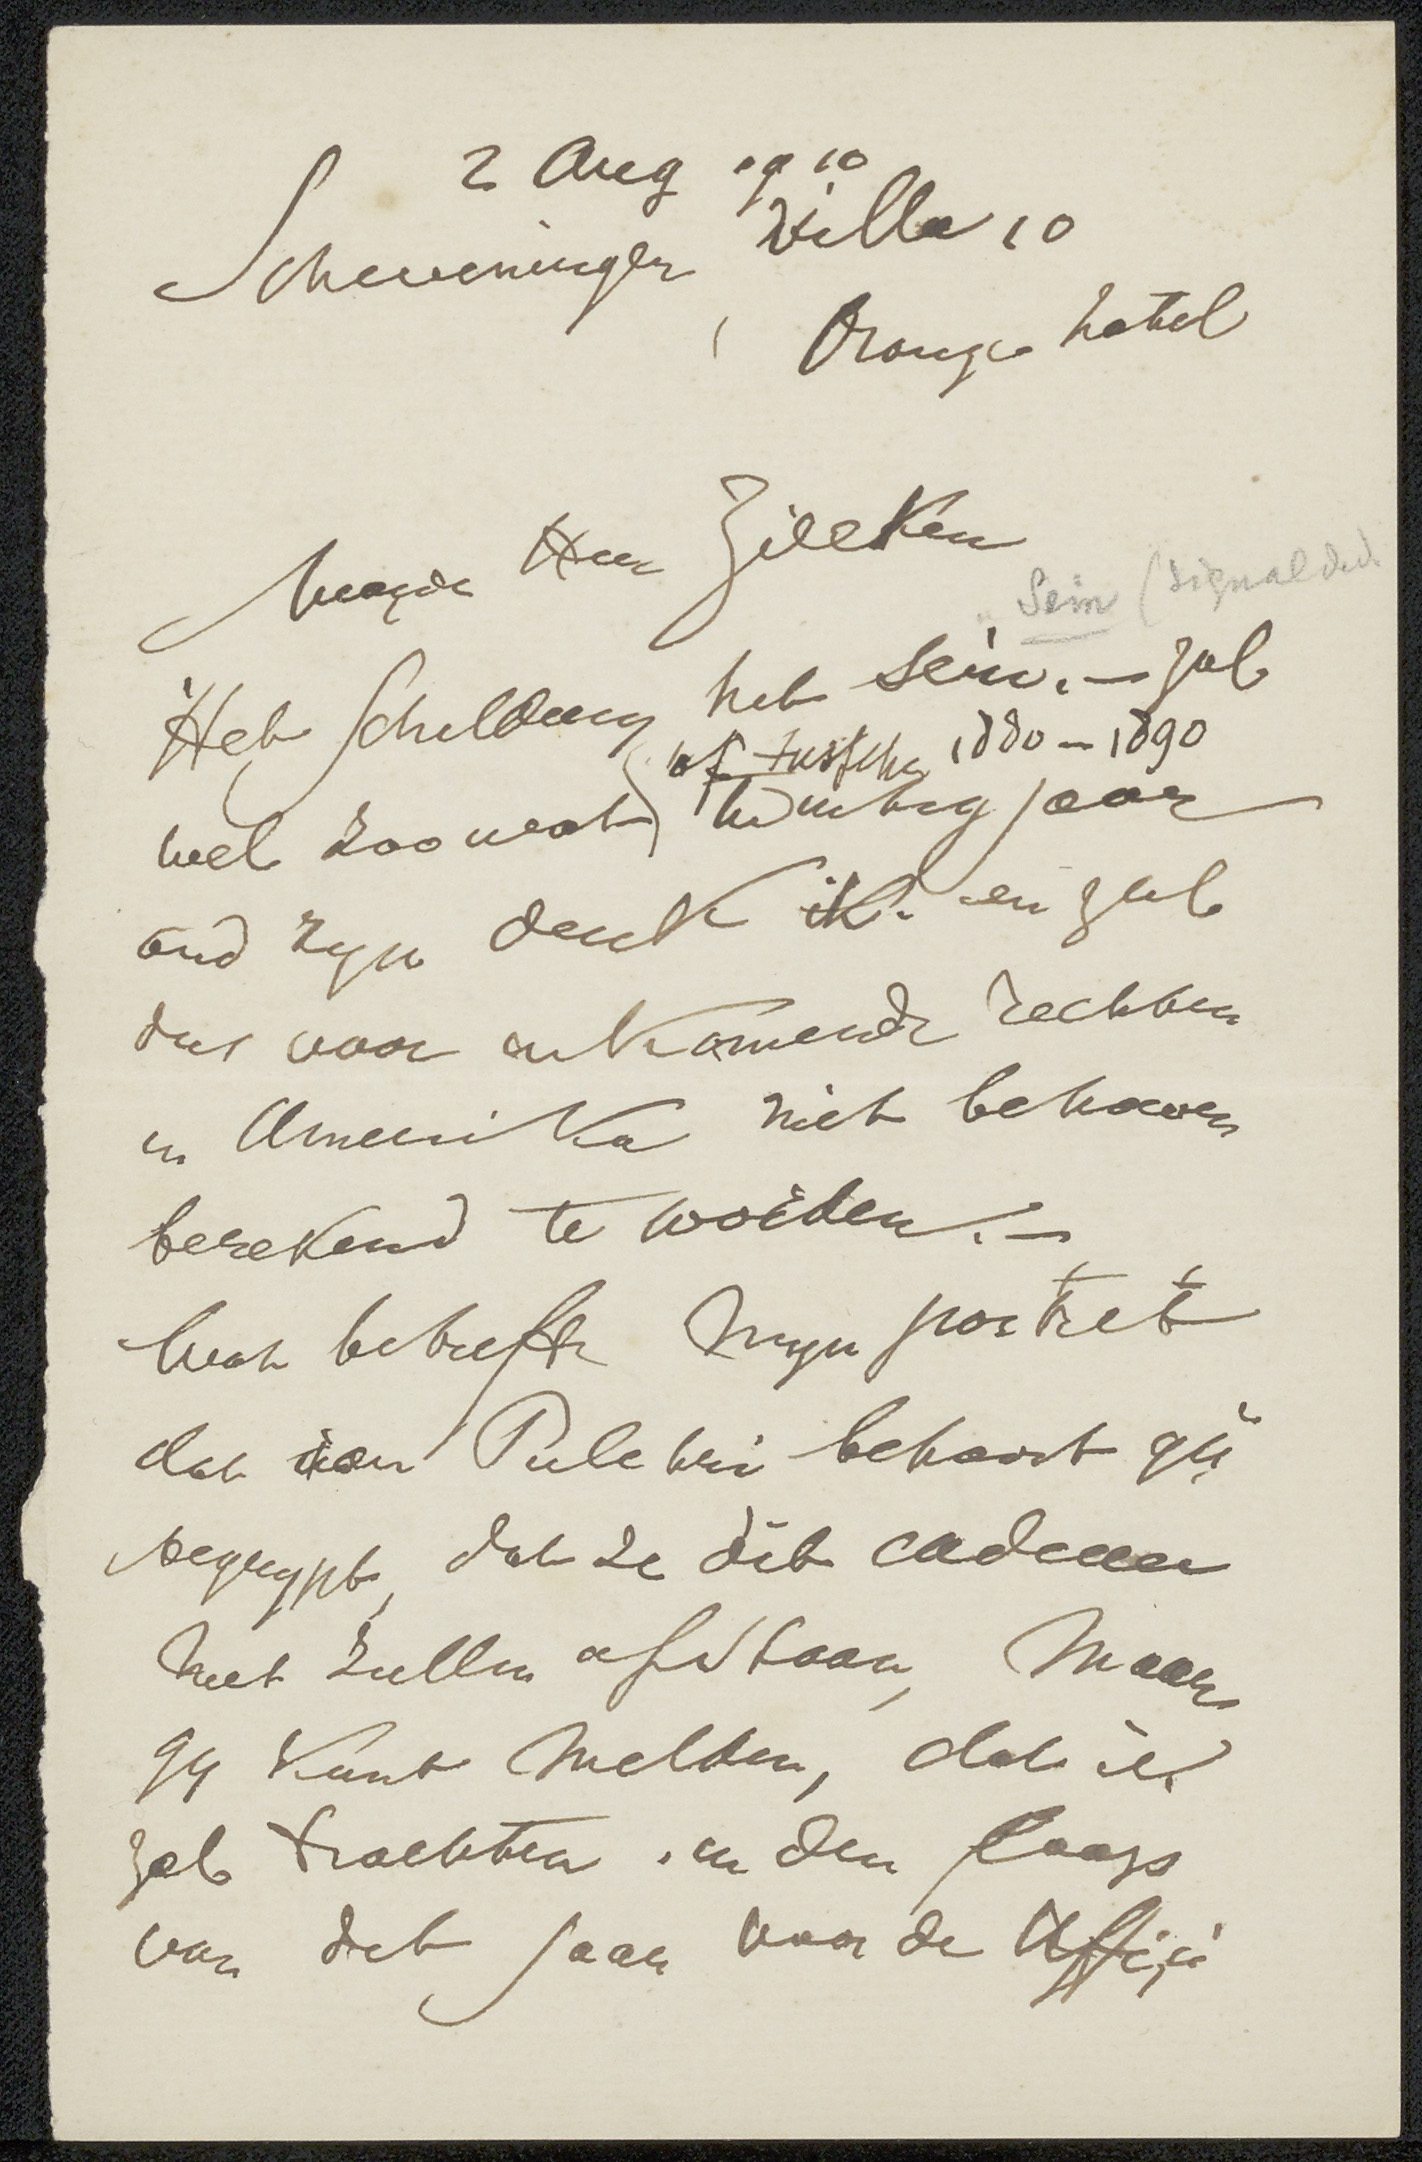 2 Aug 1910
Scheveningen Villa 10
Orange hotel
Waarde Heer Zilcken
Sein (Signal
Het schilderij het sein. — zal
of tusschen 1880 – 1890
wel zoowat twintig jaar
oud zijn denk ik. en zal
dus voor inkomende rechten
in Amerika niet behoeven
berekend te worden. —
Wat betreft mijn portret
dat aan Pulchri behoort gij
begrijpt, dat ze dit cadeau
niet zullen afstaan, Maar
gij kunt melden, dat ik
zal trachten in den loop
van dit jaar voor de Uffizi